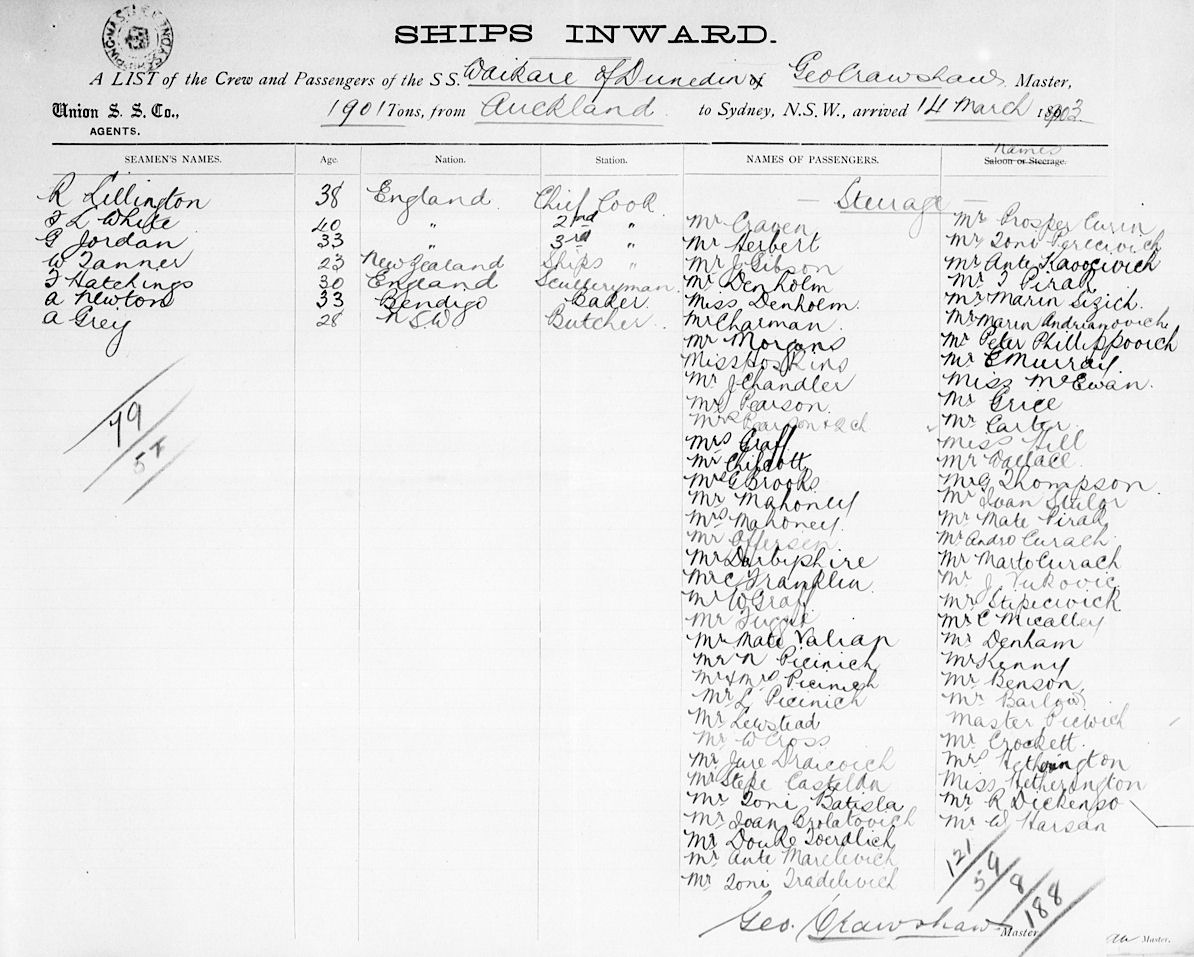 SHIPS INWARD.
A LIST of the Crew and Passengers of the S.S. Waikare of Dunedin Geo Crawshaw, Master,
Union S. S. Co., 1901 Tons, from Auckland to Sydney, N.S.W., arrived 14 March 1903
AGENTS.
SEAMEN'S NAMES. Age. Nation. Station. NAMES OF PASSENGERS. Names
Saloon or Steerage.
R Lillington 38 England. Chief Cook
F L White 40 " 2nd "
G Jordan 33 " 3rd "
W Tanner 23 New Zealand Ships "
F Hatchings 30 England Sculleryman
A Newton 33 Bendigo Baker
A Grey 28 NSW Butcher
79
57
— Steerage —
Mr Craven
Mr Herbert
Mr J Gibson
Mr Denholm
Miss Denholm
Mr Charman
Mr Morgans
Miss Hoskins
Mr J Chandler
Mr Pearson
Mrs Pearson & 2 ch
Mrs Graff
Mr Chilcott
Mr G Brooks
Mr Mahoney
Mrs Mahoney
Mr Offersen
Mr Darbyshire
Mr C Franklin
Mr W Graff
Mr
Mr Mate Valian
Mr N Picinich
Mr & Mrs Picinich
Mr L Picinich
Mr Lewstead
Mr W Cross
Mr Jure Draicovich
Mr Stepe Casteldn
Mr Toni Batisla
Mr Ioan Grolatovich
Mr Douke Tverdlich
Mr Ante Marelevich
Mr Toni Tradelevich
Mr Prosper Curin
Mr Toni Perecivich
Mr Ante
Mr T Pirak
Mr Marin Sizich
Mr Marin Andrianoviche
Mr Peter Phillippovich
Mr C Murray
Miss McEwan
Mr Grice
Mr Carter
Miss Hill
Mr Wallace
Mr G Thompson
Mr Ivan
Mr Mate Pirak
Mr Andro Curach
Mr Marto Curach
Mr J Vukovic
Mr Stipicivick
Mr C Micalley
Mr Denham
Mr Kenny
Mr Benson
Mr Barlow
Master Picwich
Mr Crockett
Mrs Hetherington
Miss Hetherington
Mr R Dickenso
Mr W Harsan
121
59
8
188
Geo. Crawshaw Master.
Master.